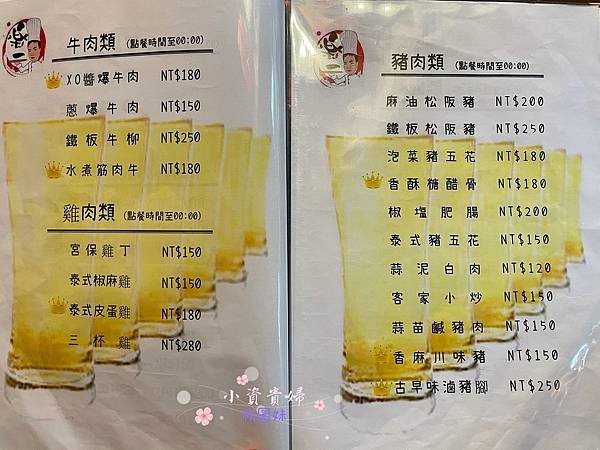 牛肉類 (點餐時間至00:00)
XO醬爆牛肉 NT$180
蔥爆牛肉 NT$150
鐵板牛柳 NT$250
水煮筋肉牛 NT$180
雞肉類 (點餐時間至00:00)
宮保雞丁 NT$150
泰式椒麻雞 NT$150
泰式皮蛋雞 NT$180
三杯雞 NT$280
豬肉類 (點餐時間至00:00)
麻油松阪豬 NT$200
鐵板松阪豬 NT$250
泡菜豬五花 NT$180
香酥糖醋骨 NT$180
椒塩肥腸 NT$200
泰式豬五花 NT$150
蒜泥白肉 NT$120
客家小炒 NT$150
蒜苗鹹豬肉 NT$150
香麻川味豬 NT$150
古早味滷豬腳 NT$250
小資貴婦